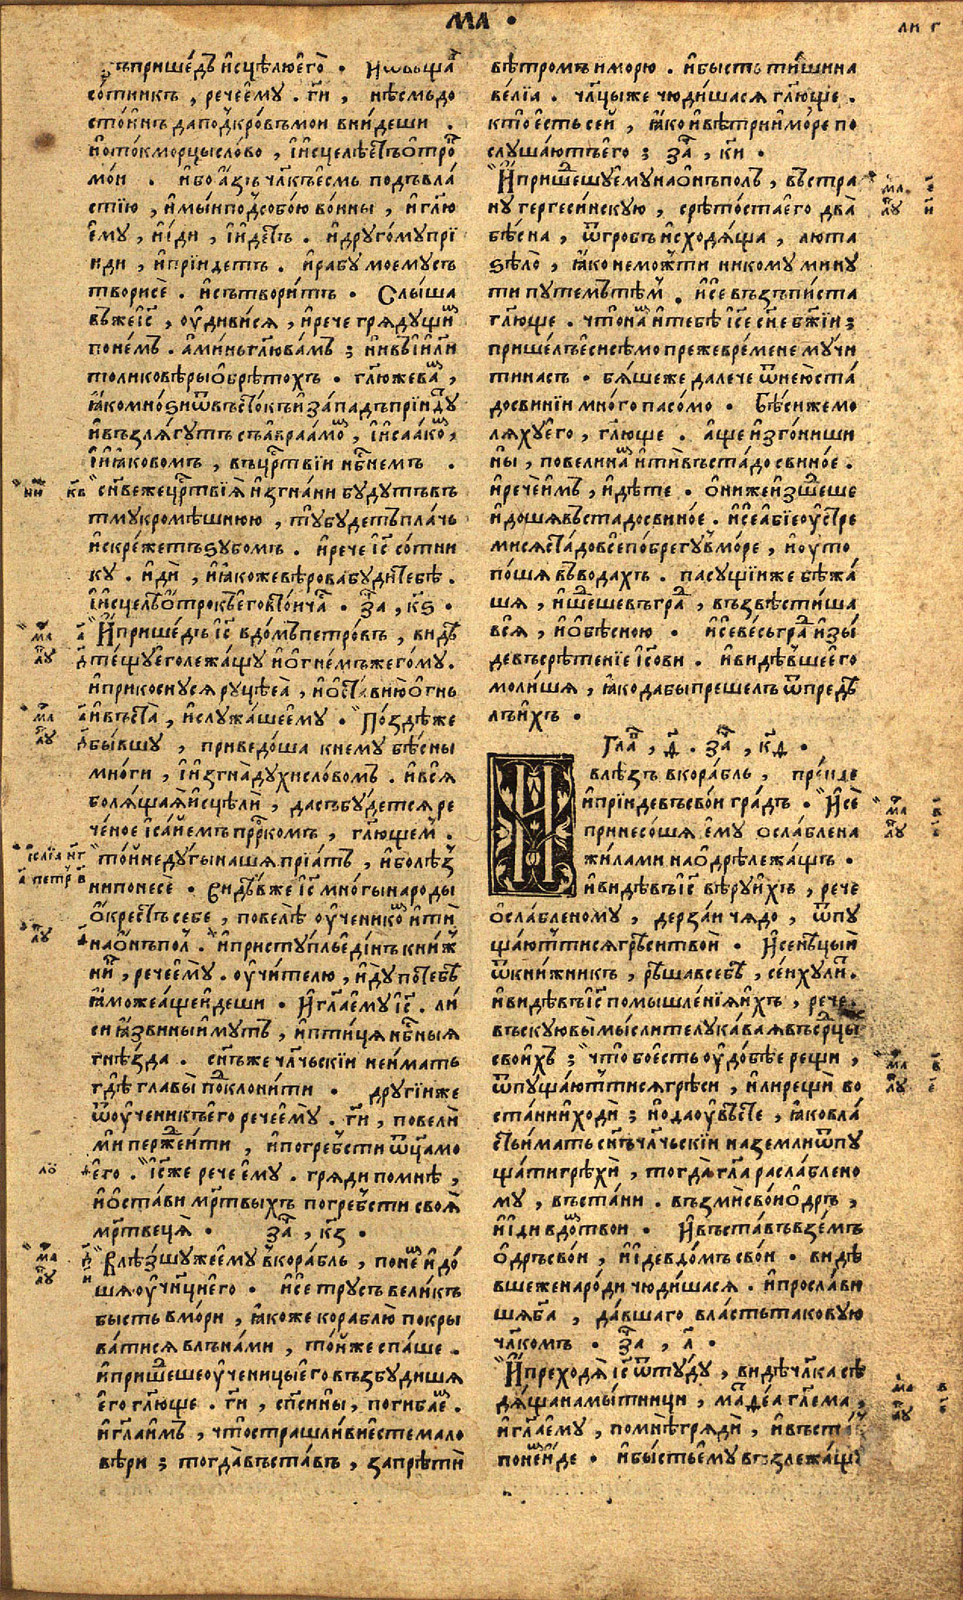 ма ·
ли г
ꙁъприше́дъ и҆сцѣлюе҆го̀ · И҆ѿвѣща
со́тникъ , рече е҆му̀ . г҃и , нѣсмь до
сто́инъ да под̾кро́въ мои вни́деши .
но то́кмо рцы сло́во , и҆ и҆сцелѣетъ ѻ҆трѡ
мо́и . и҆бо а҆зъ чл҃къ е҆смь подъ вла́
стїю , и҆мы́и под̾ собо́ю во́ины , и҆ гл҃ю
е҆му , и҆ди , и҆ и҆де́тъ . и҆ дру́го́му прї
иди , и҆ прїидетъ . и҆ рабу мое му съ
твори сѐ . и҆ сътвори́тъ · Слы́ша
въ же і҆с҃ , оу҆диви́ся , и҆ рече гряду́щи
по не́мъ . а҆ми́нь гл҃ю ва́мъ ; ни въ и҆и҃ли
толико вѣры ѻ҆брѣто́хъ · гл҃ю же ва ,
ꙗ҆ко мно́ѕи ѿ въсто́къ и҆ за́падъ прїиду
и҆ възля́гутъ съ а҆враа́мо , и҆ и҆саа́ко ,
и҆ и҆ꙗ́ковомъ , въ ц҃рствїи нб҃немъ .
сн҃ве же ц҃рствїѧ и҆згна́ни будутъ въ
тму кромѣ́шнюю , ту бу́детъ пла́чь
и҆ скре́жетъ ѕубо́мъ . и҆ рече і҆с҃ со́тни
ку . и҆дѝ , и҆ ꙗ҆коже вѣ́рова бу́ди тебѣ̀ .
и҆ и҆сцелѣ ѻ҆трокъ е҆го въ то́и ча · За , кѕ ·
И҆ прише́дъ і҆с҃ в до́мъ петро́въ , видѣ
те́щу е҆го лежа́щу и҆ ѻ҆гне́мъ жего́му .
и҆ прикосну́ся руцѣ е҆ѧ̀ , и҆ ѻ҆ста́ви ю̀ ѻ҆гнь
и҆ въста̀ , и҆ служа́ше е҆му · По́здѣ же
бы́вшу , приведо́ша к нему бѣ́сны
мно́ги , и҆ и҆згна̀ ду́хи сло́вомъ . и҆ вся
боля́щаꙗ и҆сцѣлѝ , да събу́детсѧ ре
че́ное і҆са́иемъ прр҃комъ , гл҃ющем .
то́и неду́гы на́шя прїя́тъ , и҆ болѣ́з
ни понесѐ · Видѣ́въ же і҆с҃ мно́гы наро́ды
ѻ҆кре́стъ себе , повелѣ̀ оу҆ченико и҆тѝ
на ѻ҆нъ полъ . И҆ присту́пль е҆ди́нъ кни́ж
ни , рече е҆му̀ . оу҆чи́телю , и҆ду по тебѣ̀
ꙗ҆може а҆ще и҆деши · И҆ гл҃а е҆му і҆с҃ . ли
си ꙗ҆звины и҆мутъ , и҆ пти́ця нб҃ныя
гнѣ́зда . сн҃ъ же чл҃чьскїи не и҆матъ
гдѣ главы̀ поклони́ти · другі́и же
ѿ оу҆чени́къ е҆го рече е҆му̀ . г҃и , повелѝ
ми пе́рже и҆ти , и҆ погре́бсти ѿц҃а мо
е҆го . І҆с҃ же рече е҆му . гряди по мнѣ̀ ,
и҆ ѻ҆стави мр҃твыхъ погре́бсти своѧ̀
мр҃твеця̀ · За , кз ·
Влѣ́зшу же е҆му в̾ кора́бль , по не и҆до́
шя оу҆чн҃ци е҆го · и҆ се тру́съ вели́къ
бы́сть в мо́ри , ꙗ҆коже кораблю̀ покры
ва́тися влъна́ми , то́и же спа́ше .
и҆ прише́ше оу҆чени́цы е҆го възбуди́шя
е҆го гл҃юще . г҃и , сп҃си ны̀ , погиба́е .
и҆ гл҃а и҆мъ , что̀ страшли́ви е҆сте мало
вѣ́ри ; тогда̀ въста́въ , запрѣти̂
вѣ́тромъ и мо́рю . и҆ бы́сть тишина
ве́лїа . чл҃цы же чюди́шася гл҃юще .
кто̀ е҆сть се́и , ꙗ҆ко и҆ вѣ́три и҆ мо́ре по
слу́шаютъ е҆го ; за , ки ·
И҆ прише́шу е҆му на ѻ҆нъ полъ , въ стра
ну̀ гергеси́нскую , срѣто́ста е҆го два̀
бѣ́сна , ѿ гро́бъ и҆сходя́ща , лю́та
ѕѣло̀ , ꙗ҆ко не мо́жти никому мину
ти путе́мъ тѣм . и҆ се възъпи́ста
гл҃юще . что̀ на и҆ тебѣ̀ і҆с҃е сн҃е бж҃їи ;
прише́лъ е҆си сѣ́мо пре́же вре́мене му́чи
ти насъ · бя́ше же дале́че ѿ нею̀ ста́
до свинїи мно́го пасо́мо · Бѣ́си же мо
ля́ху е҆го , гл҃юще . а҆ще и҆зго́ниши
ны , повели на и҆тѝ въ ста́до свино́е .
и҆ рече и҆мъ , и҆дѣ́те . ѻ҆ни же и҆зше́ше
и҆до́шя въ ста́до свино́е . и҆ се а҆бїе оу҆стре
мися́ ста́до все̂ по бре́гу в̾ мо́ре , и҆ оу҆то
по́шя въ вода́хъ . пасу́щїи же бѣжа́
шя , и҆ ше́ше въ гра , възвѣсти́ша
вся̀ , и҆ ѻ҆ бѣ́сною · и҆ се ве́сь гра и҆зы́
де въ срѣ́тенїе і҆с҃ови . и҆ ви́дѣвше е҆го
моли́шя , ꙗ҆ко дабы преше́лъ ѿ предѣ
лъ и҆хъ ·
Гла , д҃ . За , кд ·
И влѣ́зъ в кора́бль , пре́иде
и҆ прїиде въ сво́и гра́дъ · И҆ се̂
принесо́шя е҆му ѻ҆сла́блена
жи́лами на ѻ҆дрѣ̀ лежа́щъ .
и҆ ви́дѣвъ і҆с҃ вѣ́ру и҆хъ , рече
ѻ҆сла́бленому , дерза́и чя́до , ѿпу
ща́ютсѧ грѣсѝ твои · И҆ се нѣ́цыи
ѿ кни́жникъ , рѣ́ша в себѣ , се́и ху́ли .
и҆ ви́дѣвъ і҆с҃ помышле́нїя и҆хъ , рече .
въску́ю вы мы́слите лука́вая въ ср҃цы
свои́хъ ; что́ бо е҆сть оу҆до́бѣе рещи ,
ѿпуща́ютсѧ грѣси , и҆ли рещѝ во
ста́ни и҆ ходѝ ; но да оу҆вѣ́сте , ꙗ҆ко вла́
сть и́мать сн҃ъ чл҃чьскїи на земли ѿпу
ща́ти грѣхѝ , тогда̀ гл҃а расла́блено
му , въста́ни . възмѝ сво́и ѻ҆дръ ,
и҆ и҆ди в до твои · И҆ въста́въ взе́мъ
ѻ҆дръ сво́и , и҆ и҆де в до́мъ сво́и · видѣ
вше же наро́ди чюди́шася . и҆ просла́ви
шя б҃а , да́вшаго вла́сть таковую
чл҃комъ . За , л ·
И҆ преходя̀ і҆с҃ ѿту́ду , видѣ чл҃ка сѣ
дя́ща на мы́тници , ма́дѳеа гл҃ема ,
и҆ гл҃а е҆му , по мнѣ грядѝ , и҆ въста
по не и҆де · и҆ бы́сть е҆му възлежа́щу